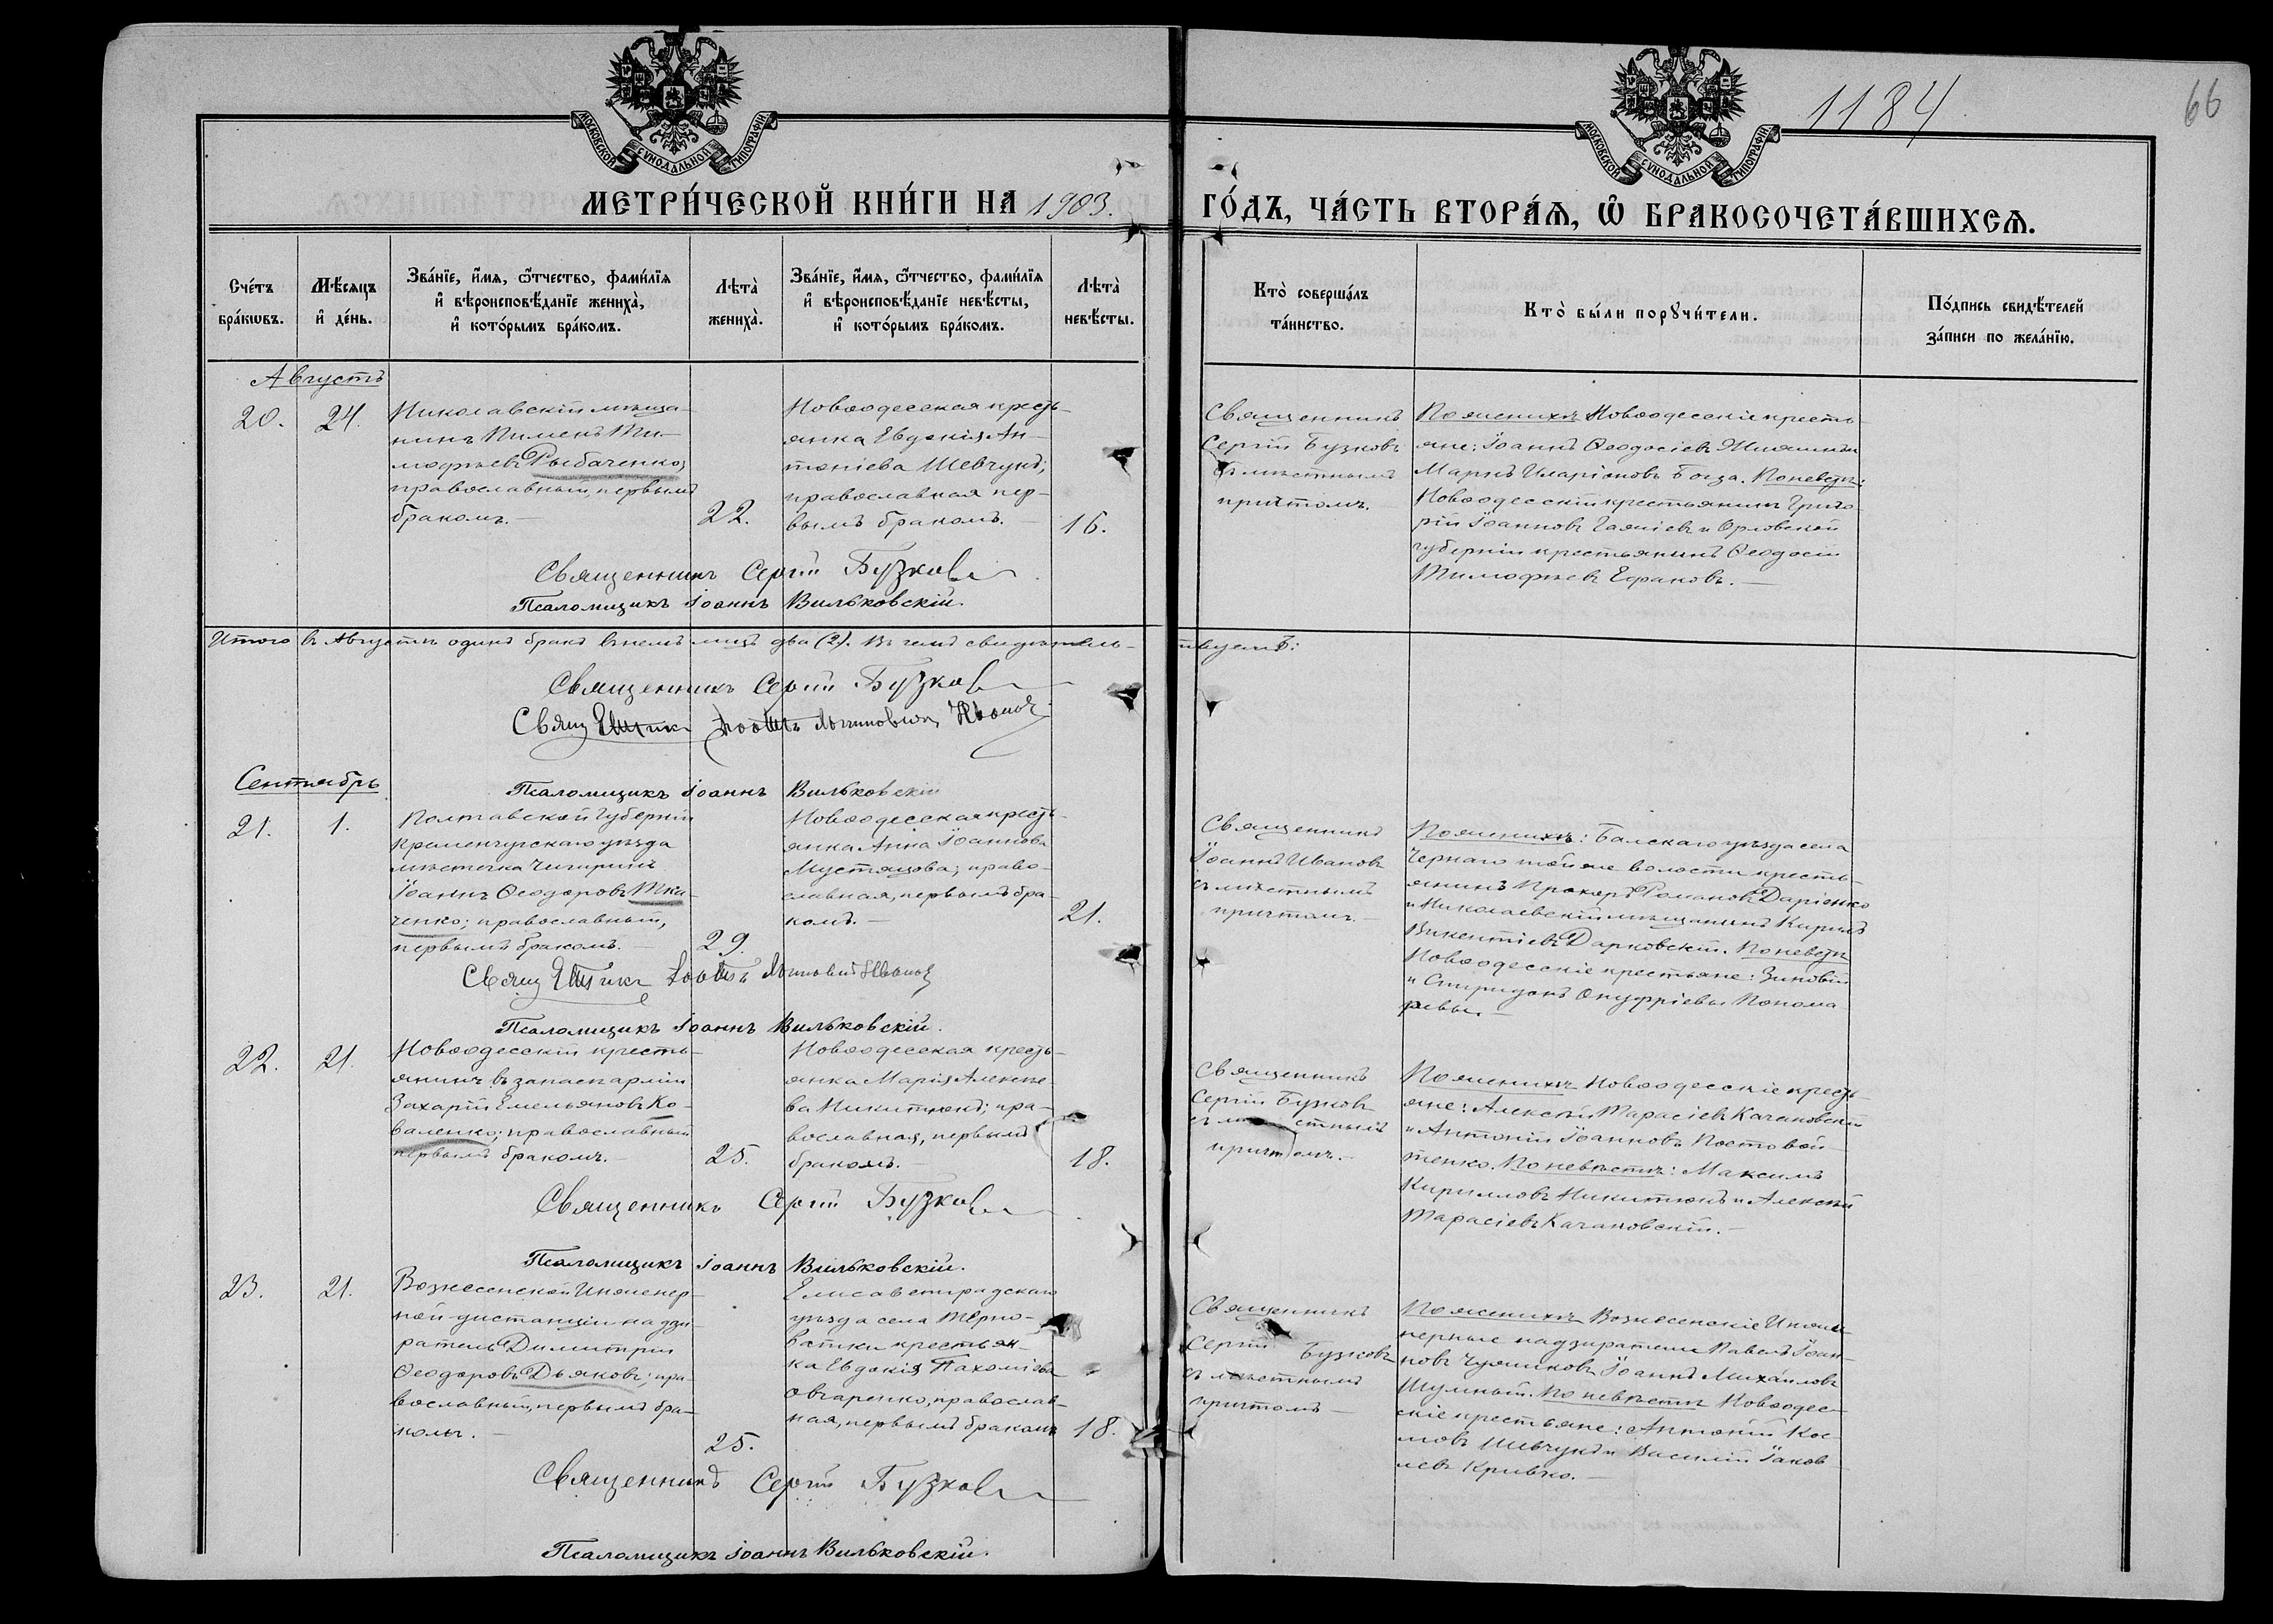 1184
66
МОСКОВСКОЙ СѴНОДАЛЬНОЙ ТИПОГРАФІИ
МОСКОВСКОЙ СѴНОДАЛЬНОЙ ТИПОГРАФІИ
МЕТРИ́ЧЕСКОЙ КНИ́ГИ НА 1903. ГО́ДЪ, ЧА́СТЬ ВТОРА́Ѧ, Ѽ БРАКОСОЧЕТА́ВШИХСѦ.
Сче́тъ
бра́кѡвъ.
Мѣ́сяцъ
и де́нь.
Зва́нїе, и́мя, ѿтчество, фами́лїя
и вѣроисповѣ́данїе жениха̀,
и кото́рымъ бра́комъ.
Лѣта̀
жениха̀.
Зва́нїе, и́мя, ѿтчество, фами́лїя
и вѣроисповѣ́данїе невѣ́сты,
и кото́рымъ бра́комъ.
Лѣта̀
невѣ́сты.
Кто̀ соверша́лъ
та́инство.
Кто̀ бы́ли порꙋчи́тели.
По́дпись свидѣ́телей
за́писи по жела́нїю.
Августъ
20.
24.
Николавскій мѣща-
нинъ Пименъ Ти-
мофѣевъ Рыбаченко;
православный, первымъ
бракомъ.
22.
Новоодесская кресть-
янка Евдокія Ан-
тоніева Шевчукъ;
православная пер-
вымъ бракомъ.
16.
Священникъ
Сергій Бузковъ
съ мѣстнымъ
причтомъ.
По женихѣ Новоодесскіе кресть-
яне: Іоаннъ Ѳеодосіевъ
Маркъ Иларіоновъ Бога. По невѣстѣ:
Новоодесскій крестьянинъ Григо-
рій Іоанновъ и Орловской
губерніи крестьянинъ Ѳеодосій
Тимофѣевъ
Священникъ Сергій Бузковъ
Псаломщикъ Іоаннъ Вильковскій.
Итого въ Августѣ одинъ бракъ въ немъ лицъ два (2). Въ чемъ свидѣтель-
ствуемъ:
Священникъ Сергій Бузковъ
Свящ
Псаломщикъ Іоаннъ Вильковскій
Сентябрь
21.
1.
Полтавской губерніи
Кременчугскаго уѣзда
мѣстечка
Іоаннъ Ѳеодоровъ Тка-
ченко; православный,
первымъ бракомъ.
29.
Новоодесская кресть-
янка Анна Іоаннова
Мустяцова; право-
славная, первымъ бра-
комъ.
21.
Священникъ
Іоаннъ Ивановъ
съ мѣстнымъ
причтомъ.
По женихѣ: Балскаго уѣзда села
Чернаго той же волости кресть-
янинъ Прохоръ Романовъ Даріенко
и Николаевскій мѣщанинъ Кирилъ
Викентіевъ Дарковскій. По невѣстѣ
Новоодесскіе крестьяне: Зиновій
и Спиридонъ Онуфріевы Понома-
ревы.
Свящ
Псаломщикъ Іоаннъ Вильковскій.
22.
21.
Новоодесскій кресть-
янинъ въ запасѣ арміи
Захарій Емельяновъ Ко-
валенко; православный
первымъ бракомъ.
25.
Новоодесская кресть-
янка Марія Алексѣе-
ва Никитюкъ; пра-
вославная, первымъ
бракомъ.
18.
Священникъ
Сергій Бузковъ
съ мѣстнымъ
причтомъ.
По женихѣ Новоодесскіе кресть-
яне: Алексѣй Тарасіевъ Качановскій
и Антоній Іоанновъ Постовой-
тенко. По невѣстѣ: Максимъ
Кирилловъ Никитюкъ и Алексѣй
Тарасіевъ Качановскій.
Священникъ Сергій Бузковъ
Псаломщикъ Іоаннъ Вильковскій.
23.
21.
Вознесенской Инженер-
ной дистанціи надзи-
ратель Димитрій
Ѳеодоровъ Дьяковъ; пра-
вославный, первымъ бра-
комъ.
25.
Елисаветградскаго
уѣзда села Терно-
ватки крестьян-
ка Евдокія Пахоміева
Овчаренко, православ-
ная, первымъ бракомъ
18.
Священникъ
Сергій Бузковъ
съ мѣстнымъ
причтомъ
По женихѣ Вознесенскіе Инже-
нерные надзиратели Павелъ Іоан-
новъ Іоаннъ Михайловъ
Шумный. По невѣстѣ Новоодес-
скіе крестьяне: Антоній Кос-
мовъ Шевчукъ и Василій Іаков-
левъ Кривко.
Священникъ Сергій Бузковъ
Псаломщикъ Іоаннъ Вильковскій.